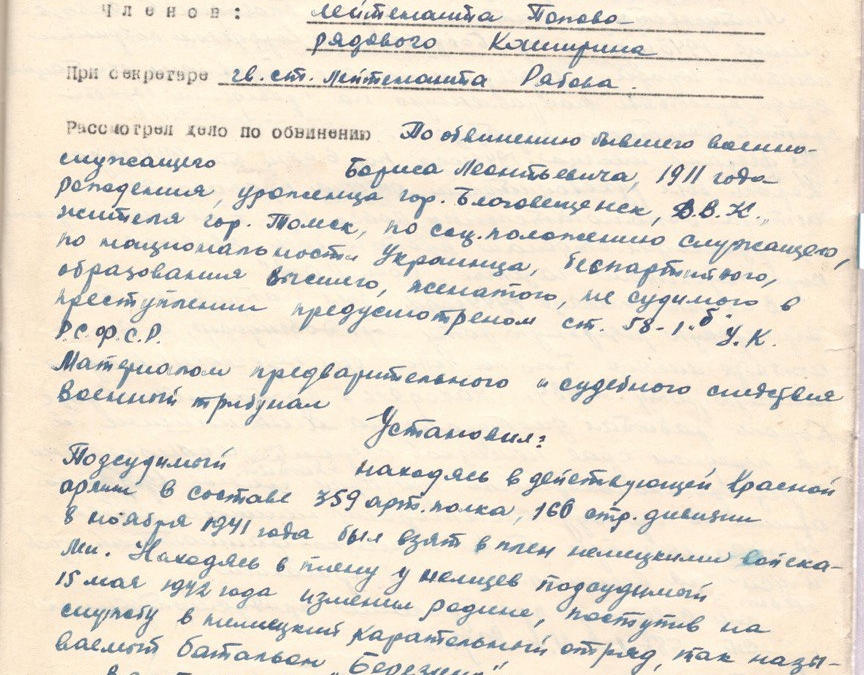 Членов: лейтенанта Попова
рядового Каширина
При секретаре гв. ст. лейтенанта Рябова.
Рассмотрел дело по обвинению По обвинению бывшего военно-
служащего Бориса Леонтьевича, 1911 года
рождения, уроженца гор. Благовещенск, Д.В.К.,
жителя гор. Томск, по соц. положению служащего,
по национальности Украинца, беспартийного,
образования высшего, женатого, не судимого в
преступлении предусмотреном ст. 58-1 "б" У.К.
Р.С.Ф.С.Р.
Материалом предварительного и судебного следствия
военный трибунал
Установил:
Подсудимый находясь в действующей Красной
армии в составе 359 арт. полка, 160 стр. дивизии
8 ноября 1941 года был взят в плен немецкими войска-
ми. Находясь в плену у немцев подсудимый
15 мая 1942 года изменил родине, поступив на
службу в немецкий карательный отряд, так назы-
ваемый батальон „Березина"